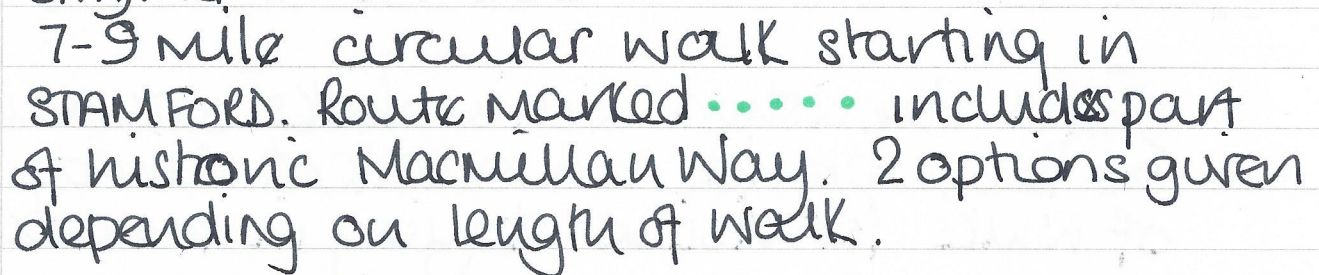 7-9 Mile circular walk starting in
STAMFORD. Route Marked ..... includes part
of historic Macmillan Way. 2 options given
depending on length of walk.